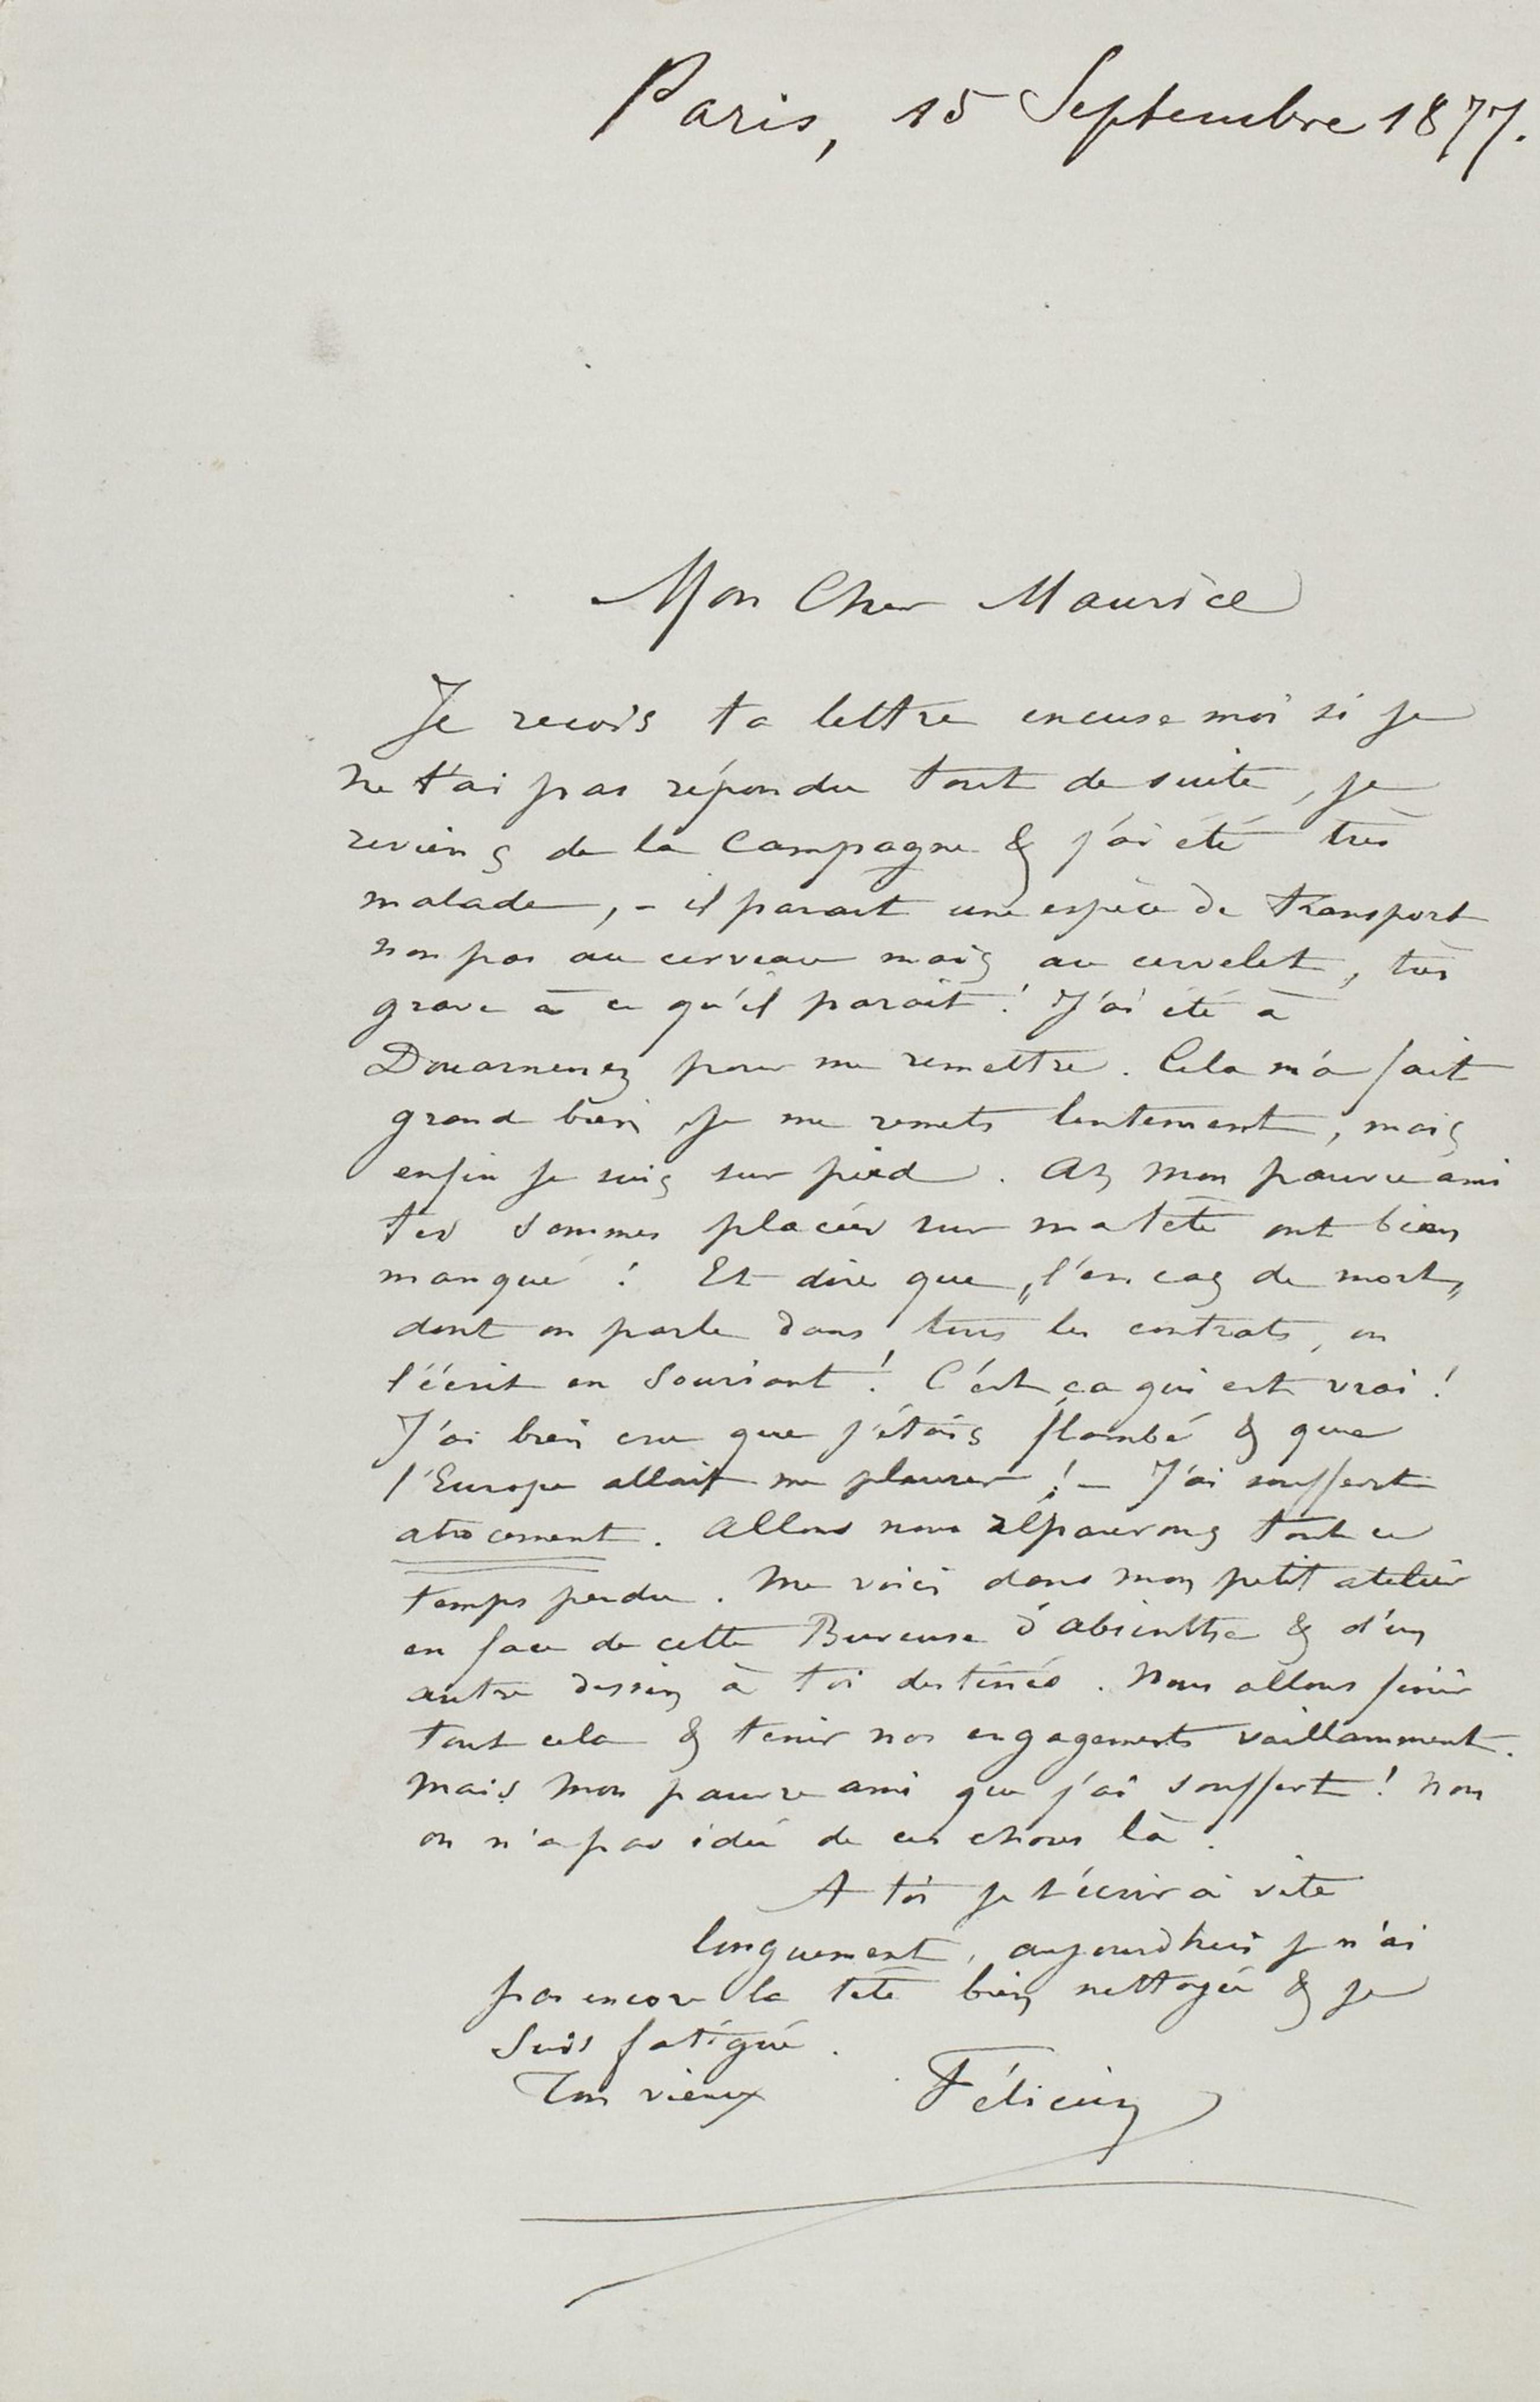 Paris, 15 Septembre 1877.
Mon Cher Maurice
Je recois ta lettre excuse moi si je
ne t'ai pas répondu tout de suite, je
reviens de la Campagne & j'ai été très
malade, – il parait une espèce de transport
non pas au cerveau mais au cervelet, très
grave à ce qu'il parait ! J'ai été à
Douarnenez pour me remettre. Cela m'a fait
grand bien je me remets lentement, mais
enfin je suis sur pied. Ah mon pauvre ami
tes sommes placées sur ma tête ont bien
manqué ! Et dire que „l'en cas de mort„
dont on parle dans tous les contrats, on
l'écrit en souriant ! C'est ça qui est vrai !
J'ai bien cru que j'étais flambé & que
l'Europe allait me pleurer ! – J'ai souffert
atrocement. Allons nous réparerons tout ce
temps perdu. Me voici dans mon petit atelier
en face de cette Buveuse d'absinthe & d'un
autre dessin à toi destinés. Nous allons finir
tout cela & tenir nos engagements vaillamment.
Mais mon pauvre ami que j'ai souffert ! Non
on n'a pas idée de ces choses là.
A toi je t'écrirai vite
longuement, aujourdhui je n'ai
pas encore la tête bien nettoyée & je
suis fatigué.
Ton vieux Félicien